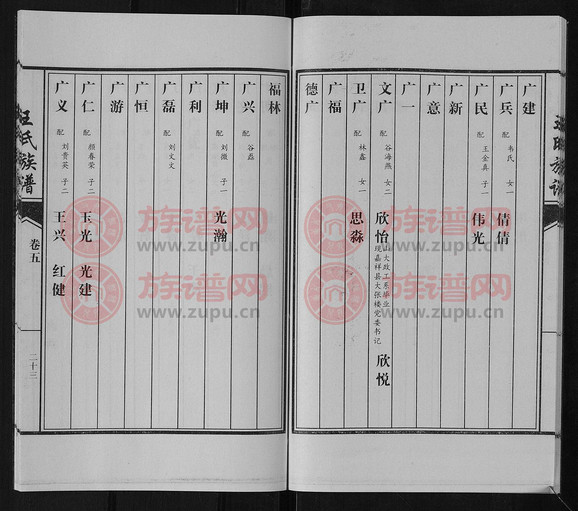 广建
广兵 配 韦氏 女一 倩倩
广民 配 王金真 子一 伟光
广新
广意
广一
文广 配 谷海燕 女二 欣怡 山大政工系毕业 现嘉祥县大张楼党委书记 欣悦
卫广 配 林鑫 女一 思淼
广福
德广
福林
广兴 配 谷磊
广坤 配 刘微 子一 光瀚
广利
广磊 配 刘文文
广恒
广游
广仁 配 颜春荣 子二 玉光 光建
广义 配 刘贵英 子二 王兴 红健
汪氏族谱 卷五 二十三
族谱网
www.zupu.cn
族谱网
www.zupu.cn
族谱网
www.zupu.cn
族谱网
www.zupu.cn